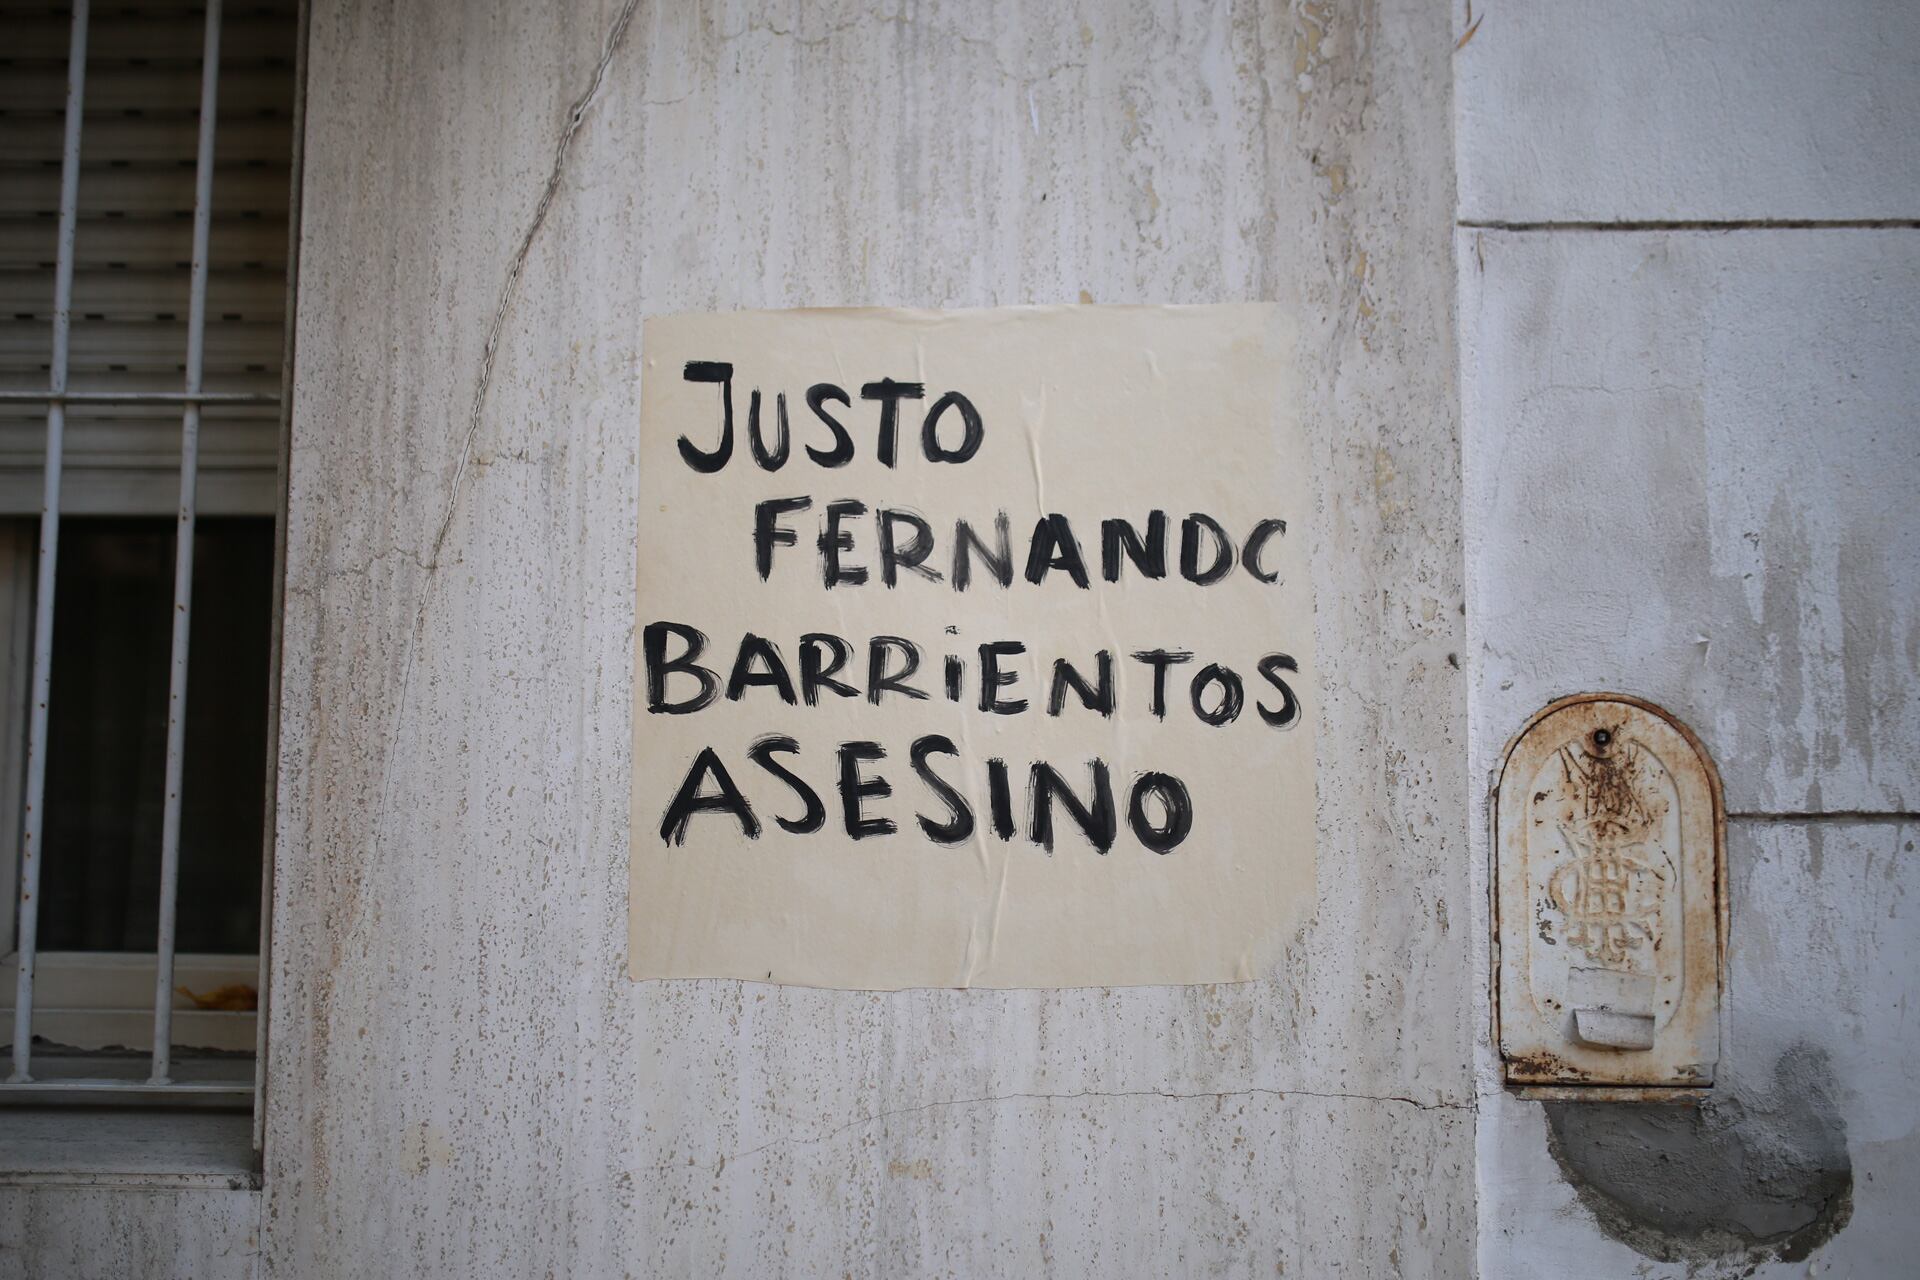 JUSTO
FERNANDO
BARRiENTOS
ASESINO